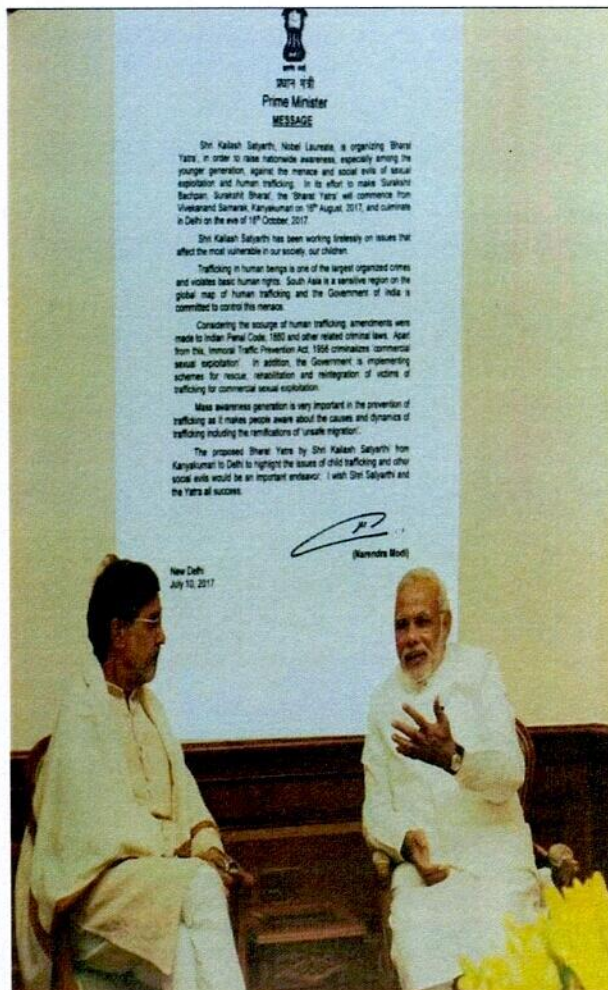 प्रधान मंत्री
Prime Minister
MESSAGE
Shri Kailash Satyarthi, Nobel Laureate, is organizing 'Bharat
Yatra', in order to raise nationwide awareness, especially among the
younger generation, against the menace and social evils of sexual
exploitation and human trafficking. In its effort to make 'Surakshit
Bachpan, Surakshit Bharat', the 'Bharat Yatra' will commence from
Vivekanand Samarak, Kanyakumari on 16th August, 2017, and culminate
in Delhi on the eve of 16th October, 2017.
Shri Kailash Satyarthi has been working tirelessly on issues that
affect the most vulnerable in our society, our children.
Trafficking in human beings is one of the largest organized crimes
and violates basic human rights. South Asia is a sensitive region on the
global map of human trafficking and the Government of India is
committed to control this menace.
Considering the scourge of human trafficking, amendments were
made to Indian Penal Code, 1860 and other related criminal laws. Apart
from this, Immoral Traffic Prevention Act, 1956 criminalizes 'commercial
sexual exploitation'. In addition, the Government is implementing
schemes for rescue, rehabilitation and reintegration of victims of
trafficking for commercial sexual exploitation.
Mass awareness generation is very important in the prevention of
trafficking as it makes people aware about the causes and dynamics of
trafficking including the ramifications of 'unsafe migration'.
The proposed Bharat Yatra by Shri Kailash Satyarthi from
Kanyakumari to Delhi to highlight the issues of child trafficking and other
social evils would be an important endeavor. I wish Shri Satyarthi and
the Yatra all success.
(Narendra Modi)
New Delhi
July 10, 2017